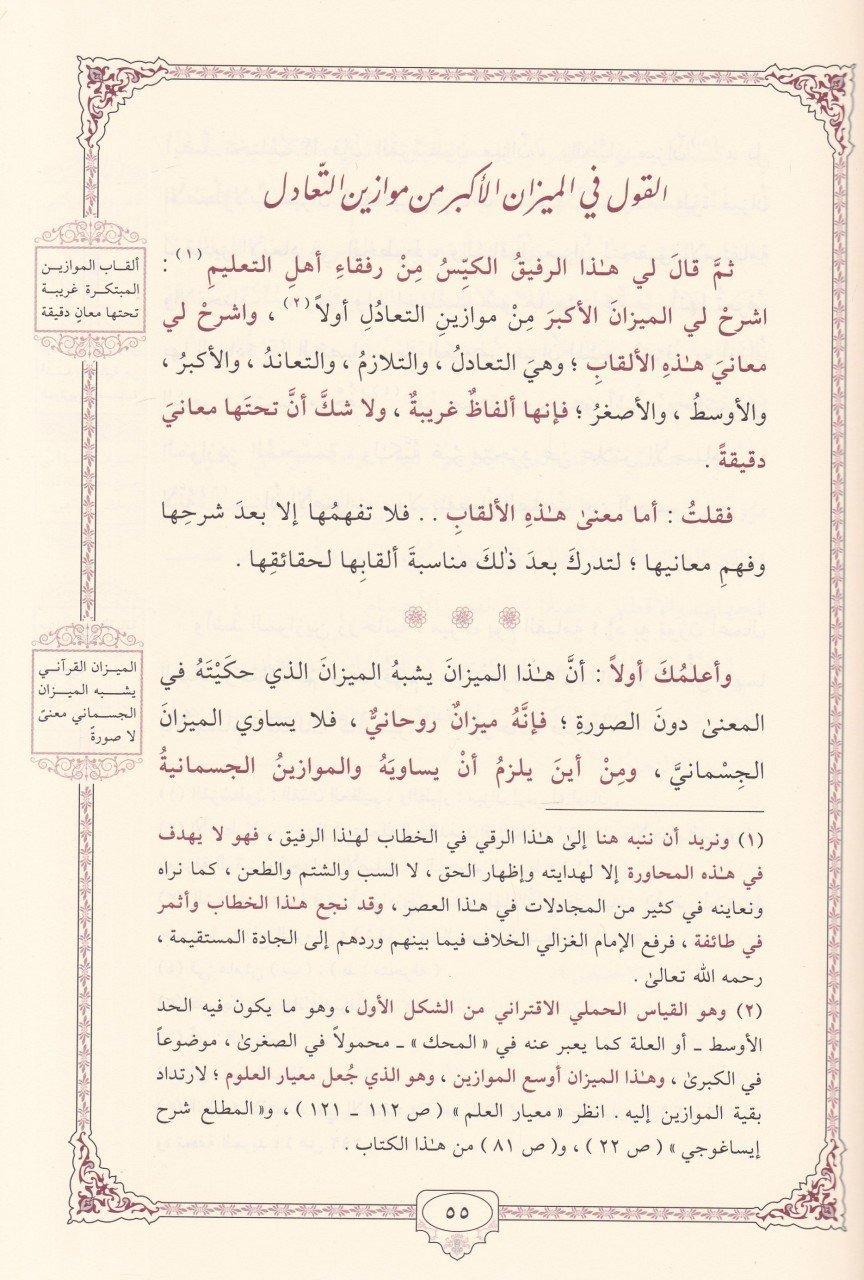 القول في الميزان الأكبر من موازين التّعادل
ثمَّ قالَ لي هـٰذا الرفيقُ الكيِّسُ مِنْ رفقاءِ أهلِ التعليمِ(١) :
اشرحْ لي الميزانَ الأكبرَ مِنْ موازينِ التعادُلِ أولاً(٢) ، واشرحْ لي
معانيَ هـٰذهِ الألقابِ ؛ وهيَ التعادلُ ، والتلازمُ ، والتعاندُ ، والأكبرُ ،
والأوسطُ ، والأصغرُ ؛ فإنها ألفاظٌ غريبةٌ ، ولا شكَّ أنَّ تحتَها معانيَ
دقيقةً .
فقلتُ : أما معنىٰ هـٰذهِ الألقابِ . . فلا تفهمُها إلا بعدَ شرحِها
وفهمِ معانيها ؛ لتدركَ بعدَ ذٰلكَ مناسبةَ ألقابِها لحقائقِها .
وأعلمُكَ أولاً : أنَّ هـٰذا الميزانَ يشبهُ الميزانَ الذي حكَيْتَهُ في
المعنىٰ دونَ الصورةِ ؛ فإنَّهُ ميزانٌ روحانيٌّ ، فلا يساوي الميزانَ
الجِسْمانيَّ ، ومِنْ أينَ يلزمُ أنْ يساويَهُ والموازينُ الجسمانيةُ
ألقاب الموازين
المبتكرة غريبة
تحتها معانٍ دقيقة
الميزان القرآني
يشبه الميزان
الجسماني معنىً
لا صورةً
(١) ونريد أن ننبه هنا إلىٰ هـٰذا الرقي في الخطاب لهـٰذا الرفيق ، فهو لا يهدف
في هـٰذه المحاورة إلا لهدايته وإظهار الحق ، لا السب والشتم والطعن ، كما نراه
ونعاينه في كثير من المجادلات في هـٰذا العصر ، وقد نجع هـٰذا الخطاب وأثمر
في طائفة ، فرفع الإمام الغزالي الخلاف فيما بينهم وردهم إلى الجادة المستقيمة ،
رحمه الله تعالىٰ .
(٢) وهو القياس الحملي الاقتراني من الشكل الأول ، وهو ما يكون فيه الحد
الأوسط ـ أو العلة كما يعبر عنه في « المحك » ـ محمولاً في الصغرىٰ ، موضوعاً
في الكبرىٰ ، وهـٰذا الميزان أوسع الموازين ، وهو الذي جُعل معيار العلوم ؛ لارتداد
بقية الموازين إليه . انظر « معيار العلم » ( ص ١١٢ ـ ١٢١ ) ، و« المطلع شرح
إيساغوجي » ( ص ٢٢ ) ، و( ص ٨١ ) من هـٰذا الكتاب .
٥٥